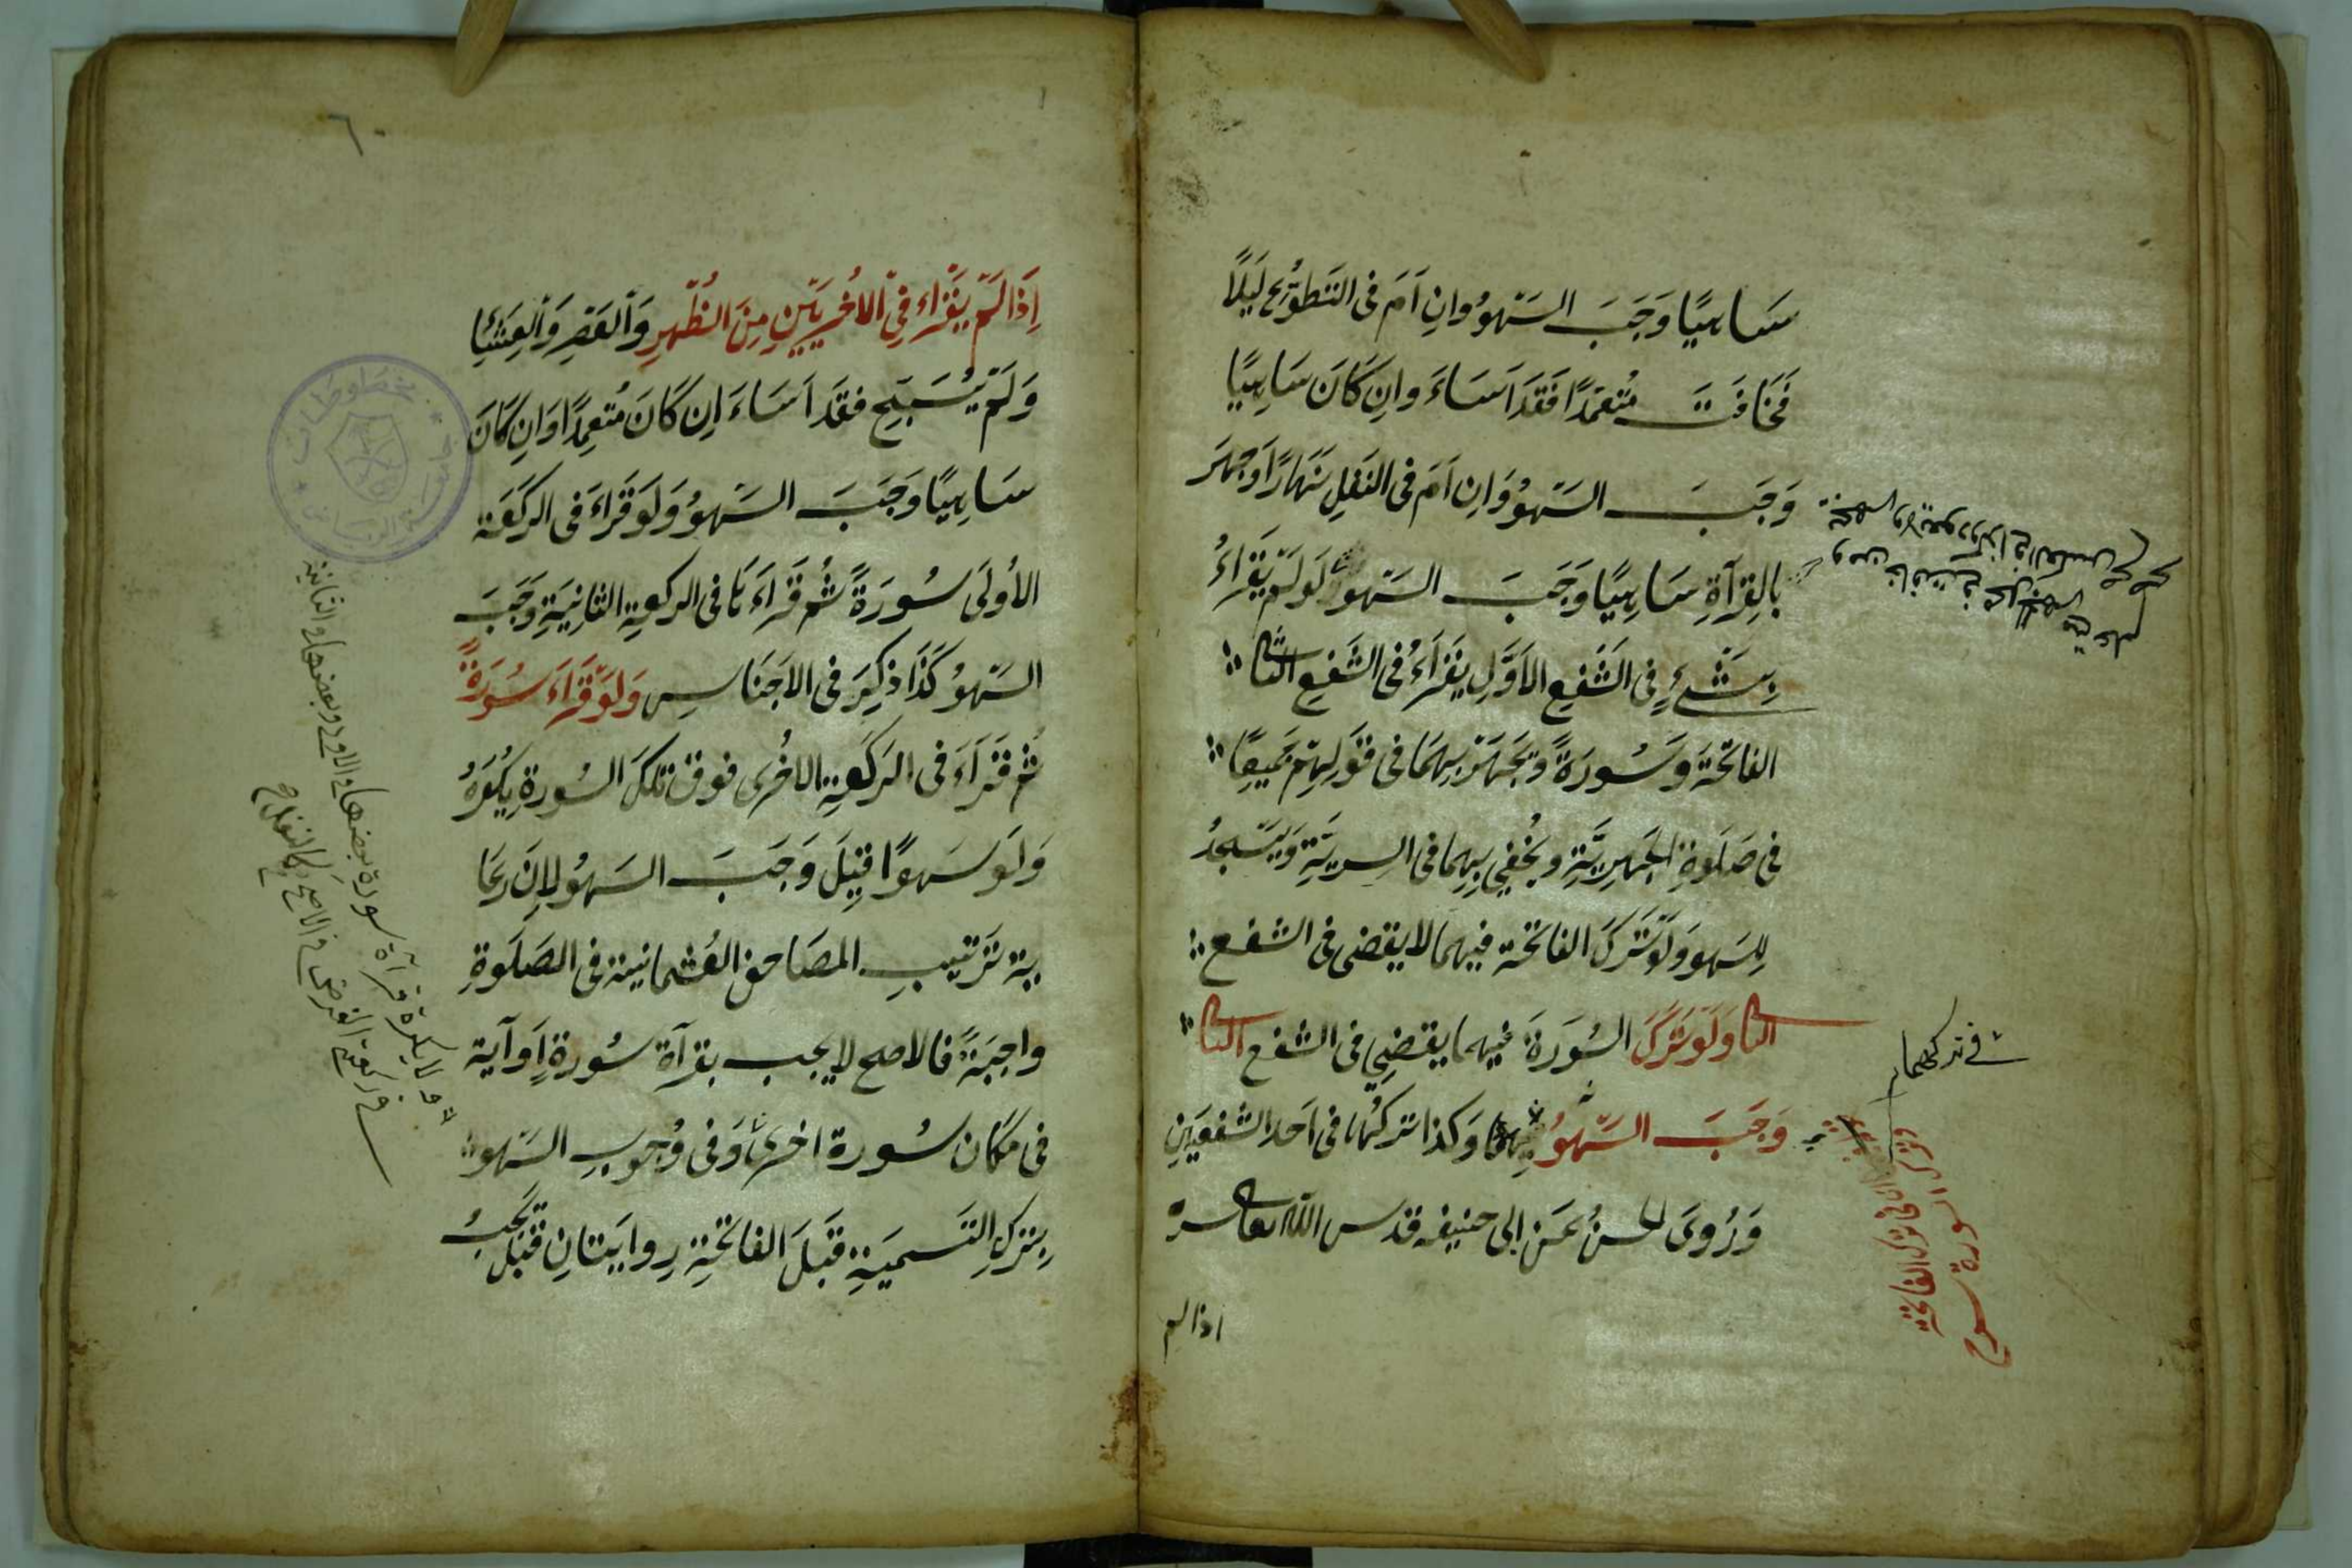 سَاهِيًا وَجَبَ السَّهْوُ وان اَمَ فى التَطَوُّعِ لَيْلًا
فَخَافَتَ مُتعَمِّدًا فَقَدْ اَسَاءَ وان كَانَ سَاهِيًا
وَجَبَ السَّهْوُ وَان اَمَ فى النَفْلِ نَهَارًا وَجَهَرَ
بالقِرآةِ سَاهِيًا وَجَبَ السَّهْوُ وَلَوْ لَمْ يَقْرَاءْ
بِشَىْءٍ فى الشَفْعِ الاَوَّلِ يَقْرَاءُ فى الشَفْعِ الثَّانى
الفاتحَةَ وَسُورَةً وَيَجْهَرُ بِهِمَا فى قَوْلِهِمْ جَمِيعًا
فى صَلَوةِ الجَهْرِيَّةِ وَيُخْفِى بِهِما فى السِريَّةِ وَيَسْجُدُ
لِلسَهو وَلَوْ تَرَكَ الفاتحَة فيهما لا يقضى فى الشفع
الثانى وَلَوْ تَرَكَ السُورَةَ فيهما يقضِى فى الشفع الثانى
وَجَبَ السَّهْوُ فيهما وَكذا تركهُما فى اَحَد الشَفْعَيْنِ
وَرُوىَ الحسنُ عَنْ ابى حنيفه قدس الله تعالى سره
اذا لم
فى تركهما
وترك السورة
اِذَا لَمْ يَقْرَاء فِى الاُخْرَيَيْنِ مِنَ الظُهْرِ وَالعَصْرِ وَالعِشَاءِ
وَلَمْ يُسَبِّح فقَدْ اَسَاءَ اِن كَانَ مُتعمِدًا وَان كَانَ
سَاهِيًا وَجَبَ السَّهْوُ وَلَوْ قَرَاءَ فى الركعَة
الأولَى سُورَةً ثُم قَرَاءَهَا فى الركعةِ الثانِيَةِ وَجَبَ
السَهْوُ كَذَا ذُكِرَ فى الاَجْنَاسِ وَلَوْ قَرَاءَ سُورَةً
ثُم قَرَاءَ فى الرَكعَةِ الاخْرى فوق تلكَ السُورة يُكْرَهُ
وَلَوْ سَهوًا قيلَ وَجَبَ السَهْوُ لاِنَ رعَا
يَة تَرْتيبِ المصَاحف العُثمانية فى الصَلَوةِ
واجِبَةٌ فالاصح لا يجب بقرآة سُورة اَو آية
فى مَكَان سُورة اخرى وَفى وُجوبِ السَهو
بِتركِ التَسميَةِ قبَلَ الفاتحَةِ رِوايَتانِ قيلَ يَجبُ
ولا يكره قرآة سورة بعضها فى الاولى وبعضها فى الثانية
فى ركعتى الفرض فى الاصح كالنفل